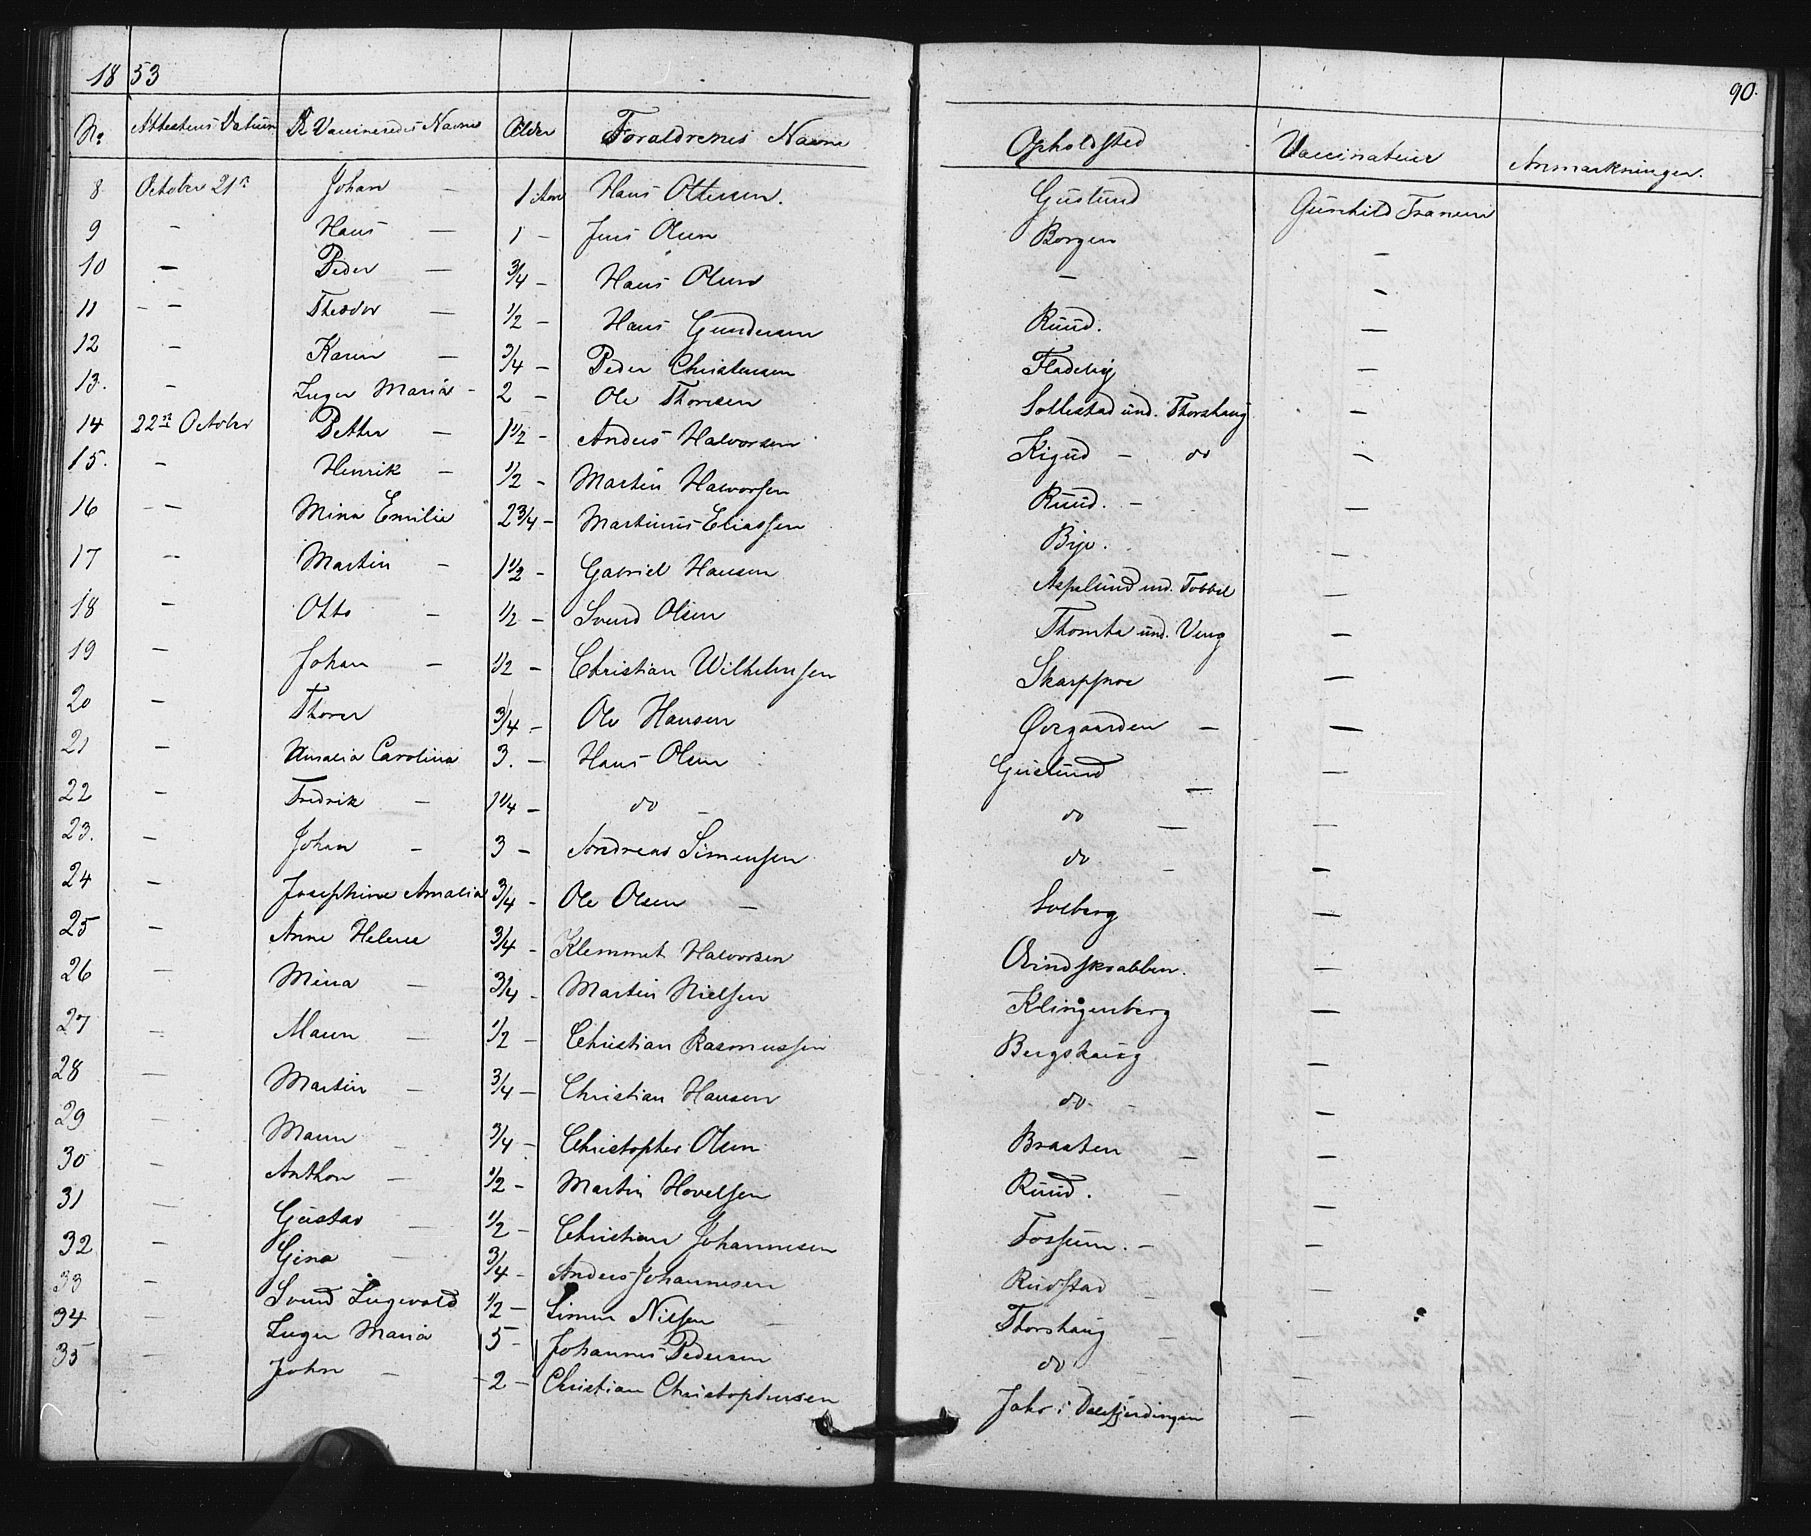 1853
90.
No. Attestens Datum De Vaccineredes Navne Alder Forældrenes Navne Opholdsted Vaccinateur Anmærkninger.
8 October 21de Johan — 1 Aar Hans Ottersen. Guslund Gunhild Franum
9 - Hans — 1 - Jens Olsen Borgen —
10 — Peder — 3/4 - Hans Olsen — -
11 - - Theodor — 1/2 - Hans Gundersen Ruud. —
12 - Karen — 3/4 - Peder Christensen Fladeby —
13. - Inger Maria - 2 - Ole Thoresen Sollestad und. Thorshaug —
14 22de October Petter — 1 1/2 - Anders Halvorsen Kigud - do -
15. - Henrik — 1/2 - Martin Halvorsen Ruud. - —
16 - - Mina Emilie 2 3/4 - Martinus Eliassen Bye. —
17 - Martin - 1 1/2 - Gabriel Hansen Aspelund und. Tobbel —
18 - Otto - 1/2 - Svend Olsen Thomta und. Veng —
19 - Johan - 1/2 - Christian Wilhelmsen Skarpsnoe —
20 - Thorer 3/4 - Ole Hansen Øvrgaarden - —
21 - Amalia Carolina 3. - Hans Olsen Guslund — —
22 - Fredrik - 1 1/4 - do - do — —
23. - Johan - 3 - Andreas Simensen do - —
24 - Josephine Amalia 3/4 - Ole Olsen - Solberg —
25 - Anne Helene 3/4 - Klemmet Halvorsen Qvindskrabben. —
26 - Mina - 3/4 - Martin Nielsen Klingenberg —
27 - Maren - 1/2 - Christian Rasmussen Bergskaug —
28 - Martin - 3/4 - Christian Hansen do - —
29 - Maren - 3/4 - Christopher Olsen Braaten - —
30 - Anthon - 1/2 - Martin Hovelsen Ruud. - —
31 - Gustav - 1/2 - Christian Johannesen Fossum. - —
32 - Gina - 3/4 - Anders Johannesen Rudstad - —
33 - Svend Ingevald 1/2 - Simen Nilsen - Thorshaug - —
34 - Inger Maria 5 - Johannes Pedersen do - —
35 - John - 2 - Christian Christophersen Jahr i Dalefjerdingen —